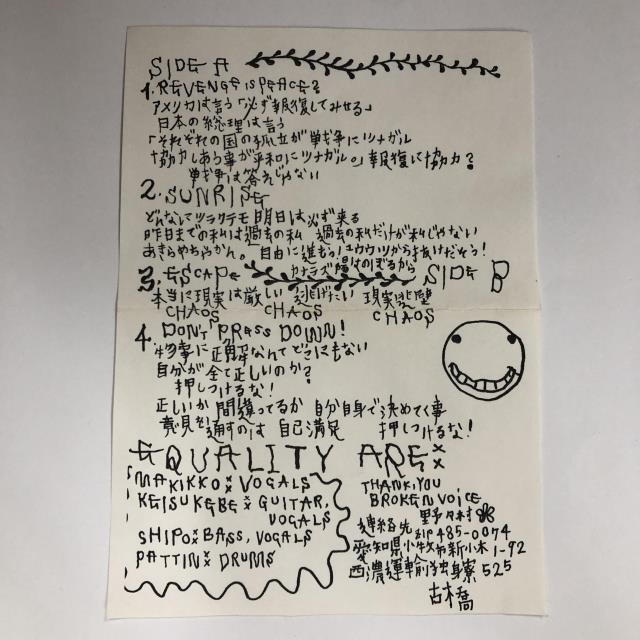 SIDE A
1. REVENGE IS PEACE?
アメリカは言う「必ず報復してみせる」
日本の総理は言う
「それぞれの国の孤立が戦争にツナガル
協力しあう事が平和にツナガル。」報復に協力?
戦争は答えじゃない
2. SUNRISE
どんなにツラクテモ明日は必ず来る
昨日までの私は過去の私 過去の私だけが私じゃない
あきらめちゃかん。自由に進もう!ユウウツから抜けだそう!
カナラズ陽はのぼるから
3. ESCAPE SIDE B
本当に現実は厳しい 逃げたい 現実逃避
CHAOS CHAOS CHAOS
4. DON'T PRESS DOWN!
物事に正解なんてどこにもない
自分が全て正しいのか?
押しつけるな!
正しいか間違ってるか 自分自身で決めてく事
意見を通すのは 自己満足 押しつけるな!
EQUALITY ARE:
MAKIKKO: VOCALS
KEISUKEBE: GUITAR, VOCALS
SHIPO: BASS, VOCALS
PATTIN: DRUMS
THANK, YOU
BROKEN VOICE
野々村
連絡先 ZIP 485-0074
愛知県小牧市新小木1-92
西濃運輸独身寮525
古橋